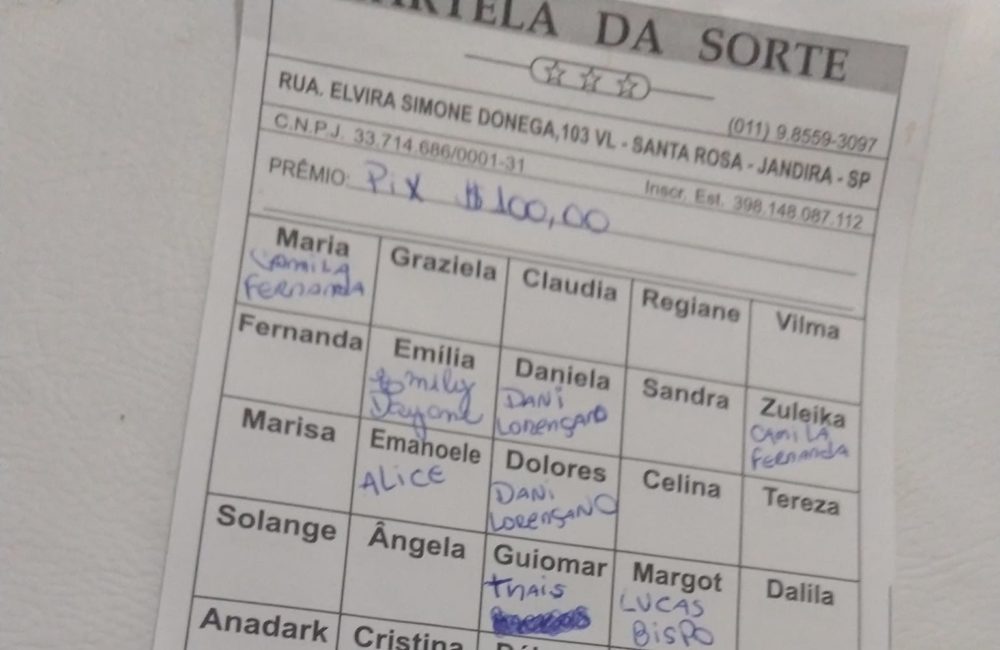 CARTELA DA SORTE
(011) 9.8559-3097
RUA. ELVIRA SIMONE DONEGA,103 VL - SANTA ROSA - JANDIRA - SP
C.N.P.J. 33.714.686/0001-31 Inscr. Est. 398.148.087.112
PRÊMIO: Pix $100,00
Maria Graziela Claudia Regiane Vilma
Camila
Fernanda
Fernanda Emília Daniela Sandra Zuleika
Emily DANi CAMiLA
Dayane LORENSANO Fernanda
Marisa Emahoele Dolores Celina Tereza
ALiCE DANi
LORENSANO
Solange Ângela Guiomar Margot Dalila
thais LUCAS
BisPO
Anadark Cristina